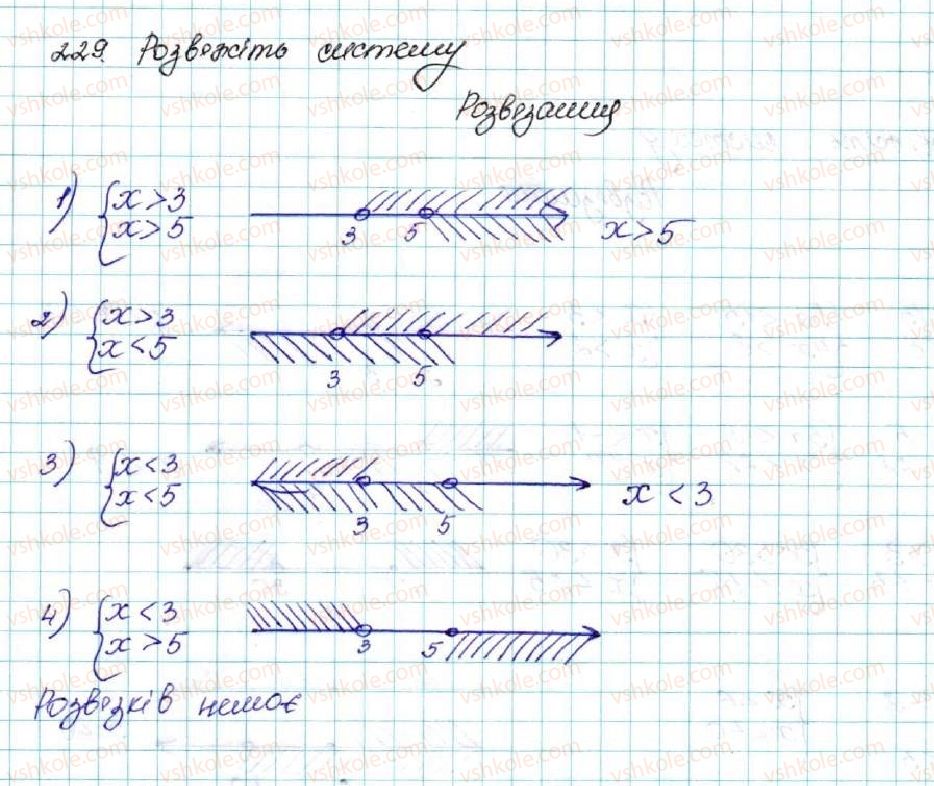 229. Розвяжіть систему
Розвязання
1) { x > 3
x > 5
3 5
x > 5
2) { x > 3
x < 5
3 5
3) { x < 3
x < 5
3 5
x < 3
4) { x < 3
x > 5
3 5
Розвязків немає
vshkole.com